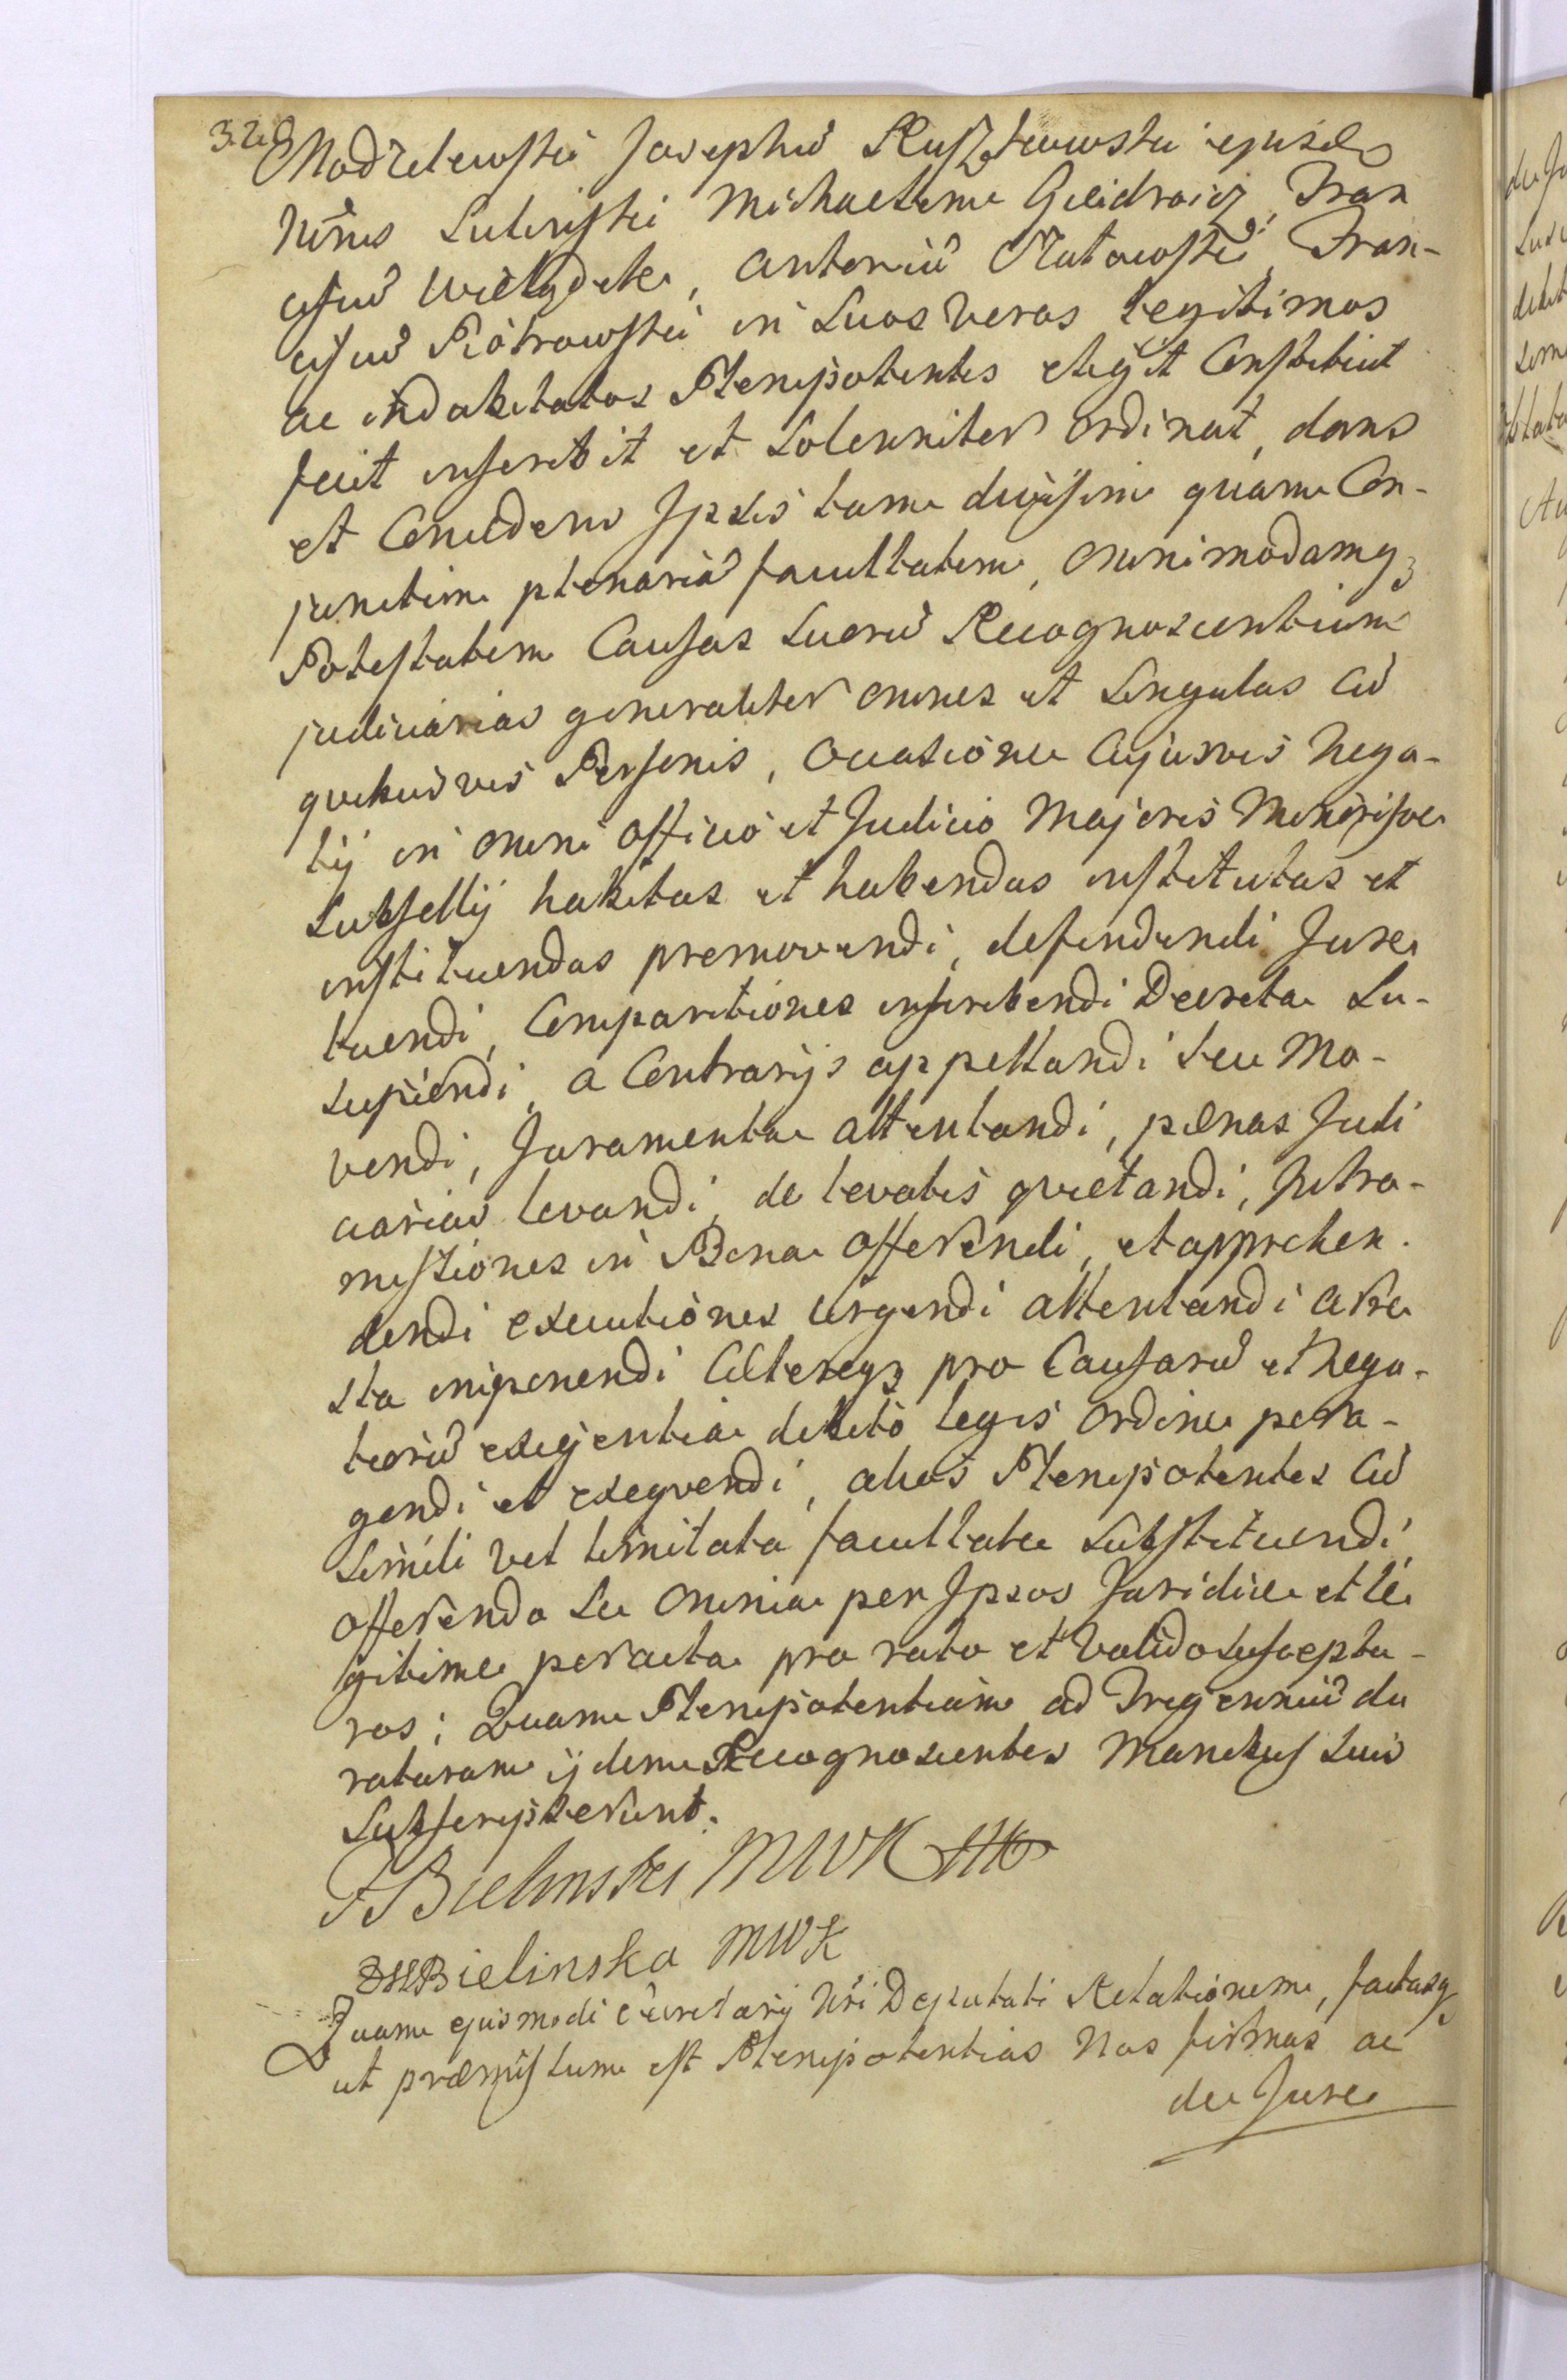 328
Modzelewski Josephū Rusztkowski ejusdē
Nōnis Sulinski Michaelem Geidroicz Fran
ciscū Wielądek, Antoniū Matowski, Fran-
ciscū Piotrowski in Suos veros legitimos
ac indubitatos Plenipotentes elegit Constituit
fecit inscribit et Solenniter ordinat, dans
et Concedens Ipsis tam divisim quam Con-
junctim plenariā facultatem, omnimodamq3
Potestatem Causas Suorū Recognoscentium
judiciarias generaliter omnes et Singulas Cū
quibusvis Personis, occasione Cujusvis Nego-
tij in omni officio et Judicio Majoris Minorisve
Subsellij habitas et habendas institutas et
instituendas promovendi, defendendi Jure
tuendi, Comparitiones inscribendi Decreta Su-
scipiendi, a Contrarijs appellandi seu Mo-
vendi, Juramenta attentandi, pœnas Judi
ciarias levandi, de levatis quietandi, Intro-
missiones in Bona offerendi, et apprehen-
dendi executiones urgendi attentandi Arre
sta imponendi Cæteraq3 pro Causarū et Nego-
tiorū exigentia debito legis ordine pera-
gendi et exequendi, alios Plenipotentes Cū
Simili vel limitata facultate Substituendi,
offerendo Se omnia per Ipsos Juridice et le
gitime peracta pro rato et valido Susceptu-
ros; Quam Plenipotentiam ad Tregennuū du
raturam ijdem Recognoscentes Manibus Suis
Subscripserunt.
F Bielinski MWK
Bielinska MWK
Quam ejusmodi Secretarij Nri Deputati Relationem, factasq3
ut præmissum est Plenipotentias Nos firmas ac
de Jure